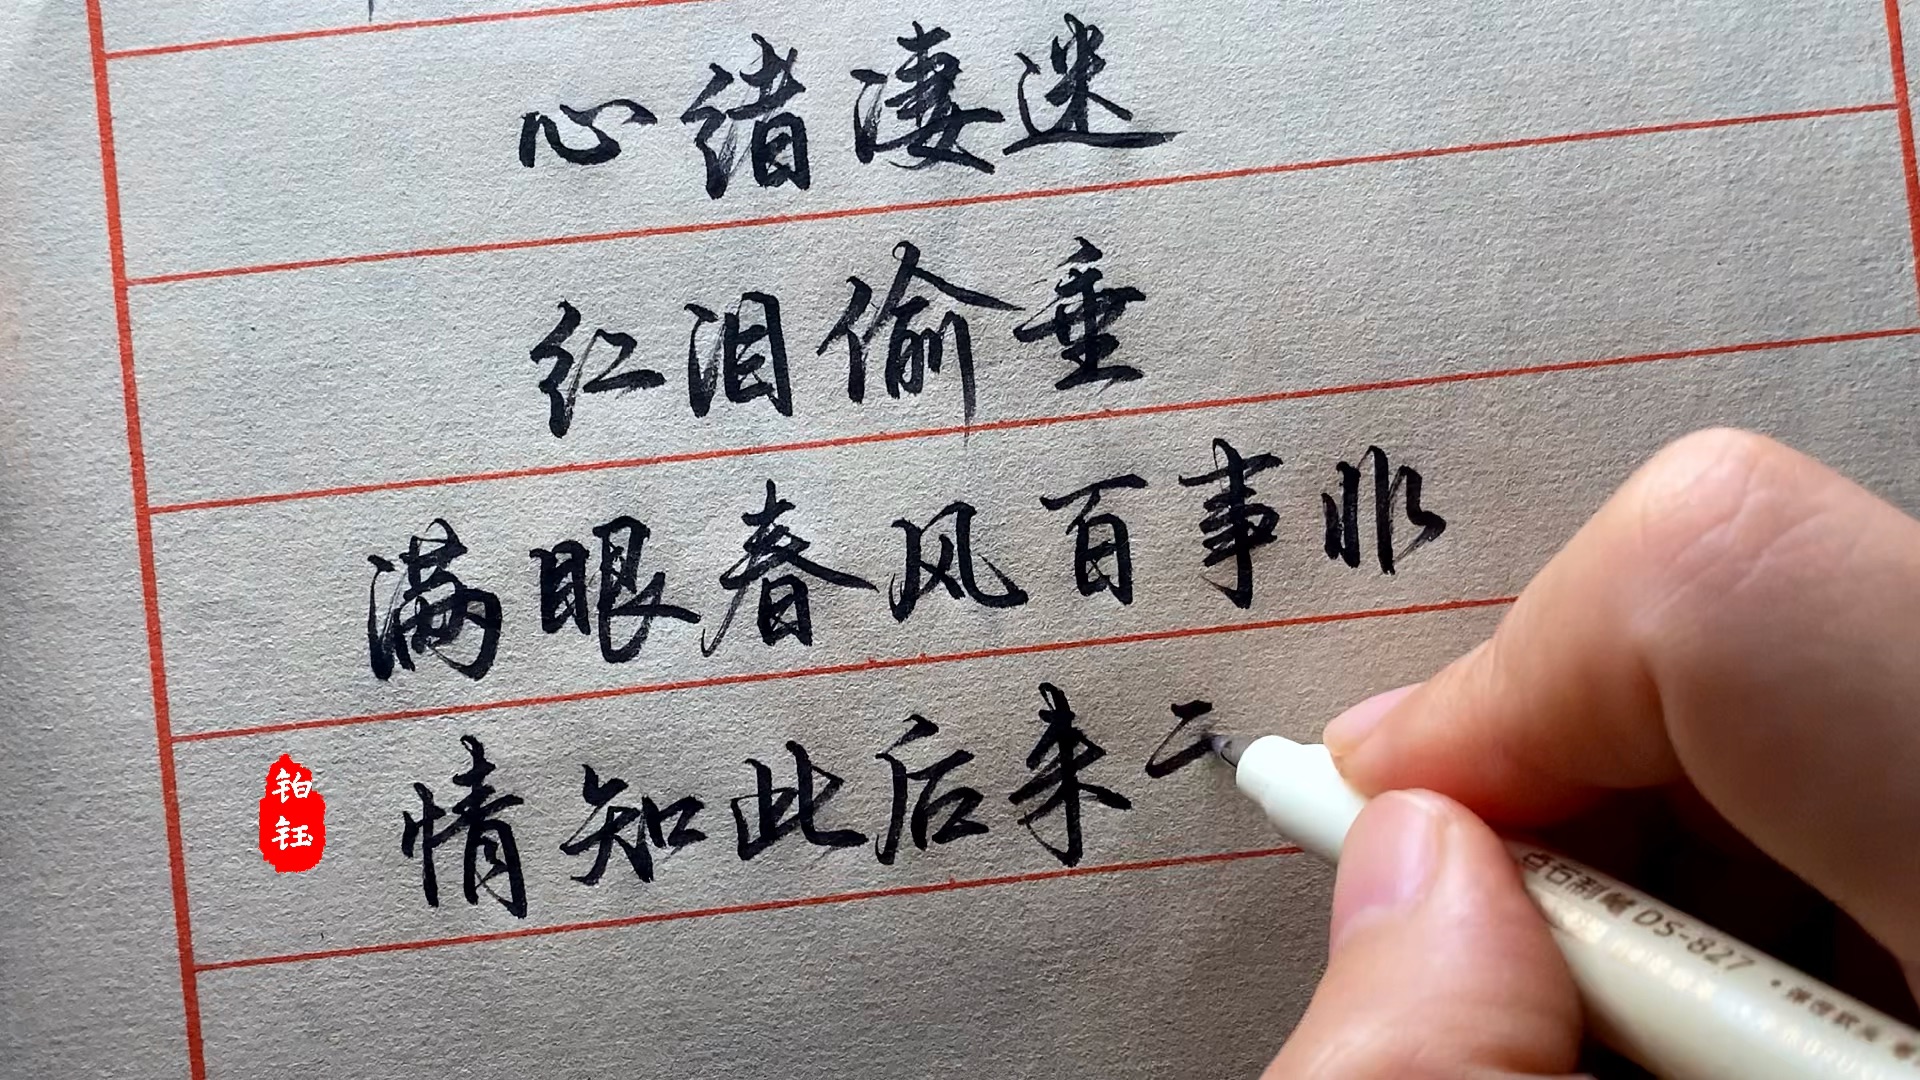 心绪凄迷
红泪偷垂
满眼春风百事非
情知此后来
铂
钰
DS-827